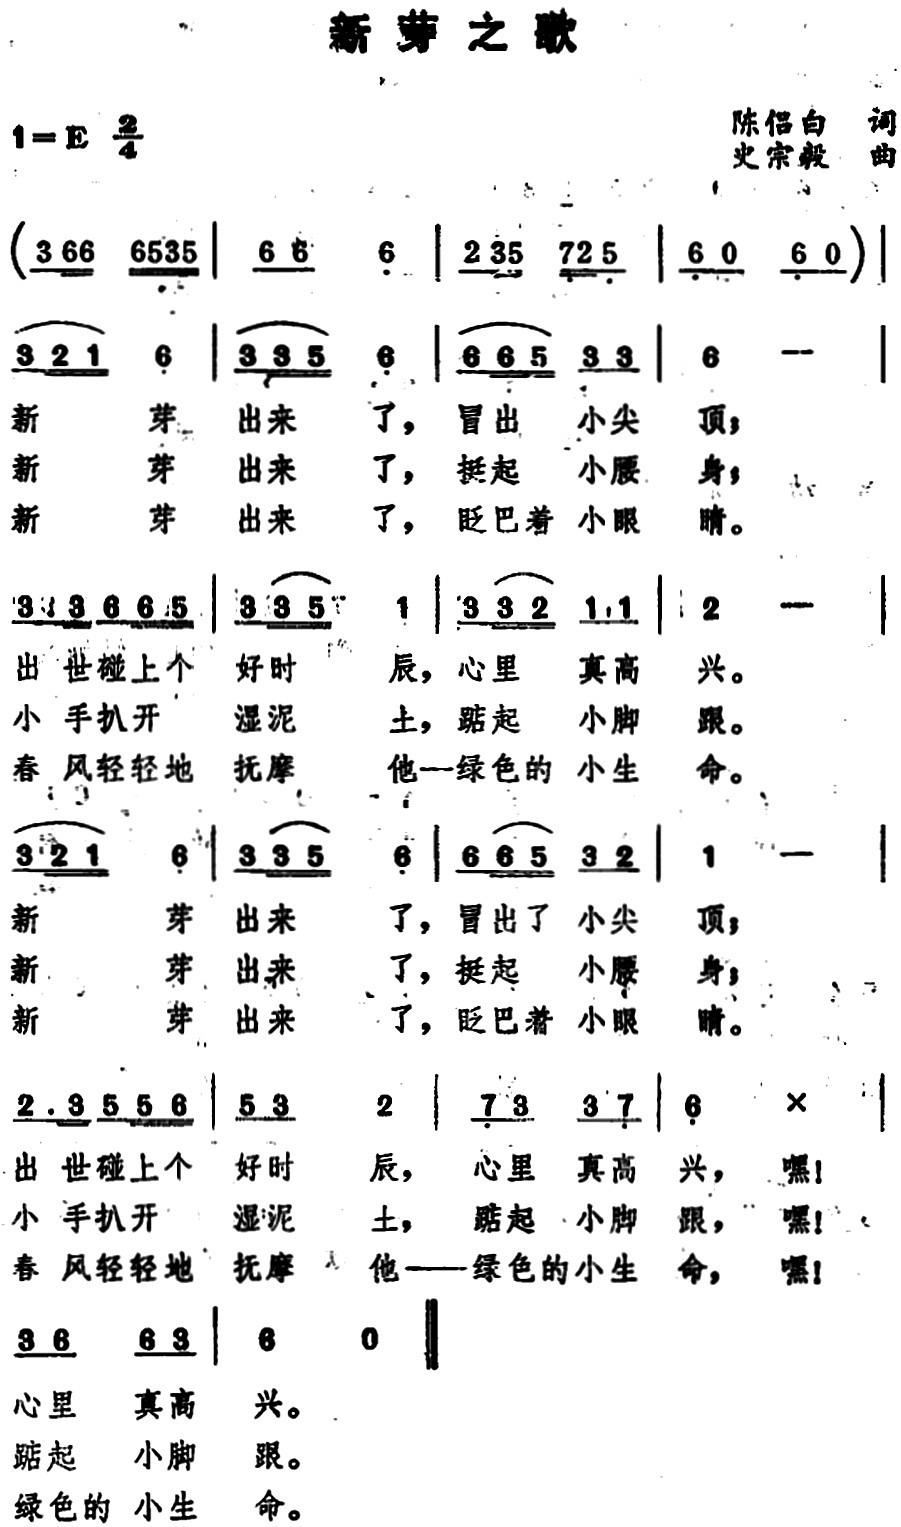 新芽之歌
1=E 2/4
陈侣白 词
史宗毅 曲
(3 66 6535 | 6 6 6 | 2 35 725 | 6 0 6 0) |
3 2 1 6 | 3 3 5 6 | 6 6 5 3 3 | 6 — |
新 芽 出来 了, 冒出 小尖 顶;
新 芽 出来 了, 挺起 小腰 身;
新 芽 出来 了, 眨巴着 小眼 睛。
3 3 6 6 5 | 3 3 5 1 | 3 3 2 1 1 | 2 — |
出 世碰上个 好时 辰, 心里 真高 兴。
小 手扒开 湿泥 土, 踮起 小脚 跟。
春 风轻轻地 抚摩 他—绿色的 小生 命。
3 2 1 6 | 3 3 5 6 | 6 6 5 3 2 | 1 — |
新 芽 出来 了, 冒出了 小尖 顶;
新 芽 出来 了, 挺起 小腰 身;
新 芽 出来 了, 眨巴着 小眼 睛。
2 . 3 5 5 6 | 5 3 2 | 7 3 3 7 | 6 × |
出 世碰上个 好时 辰, 心里 真高 兴, 嘿!
小 手扒开 湿泥 土, 踮起 小脚 跟, 嘿!
春 风轻轻地 抚摩 他——绿色的 小生 命, 嘿!
3 6 6 3 | 6 0 ‖
心里 真高 兴。
踮起 小脚 跟。
绿色的 小生 命。